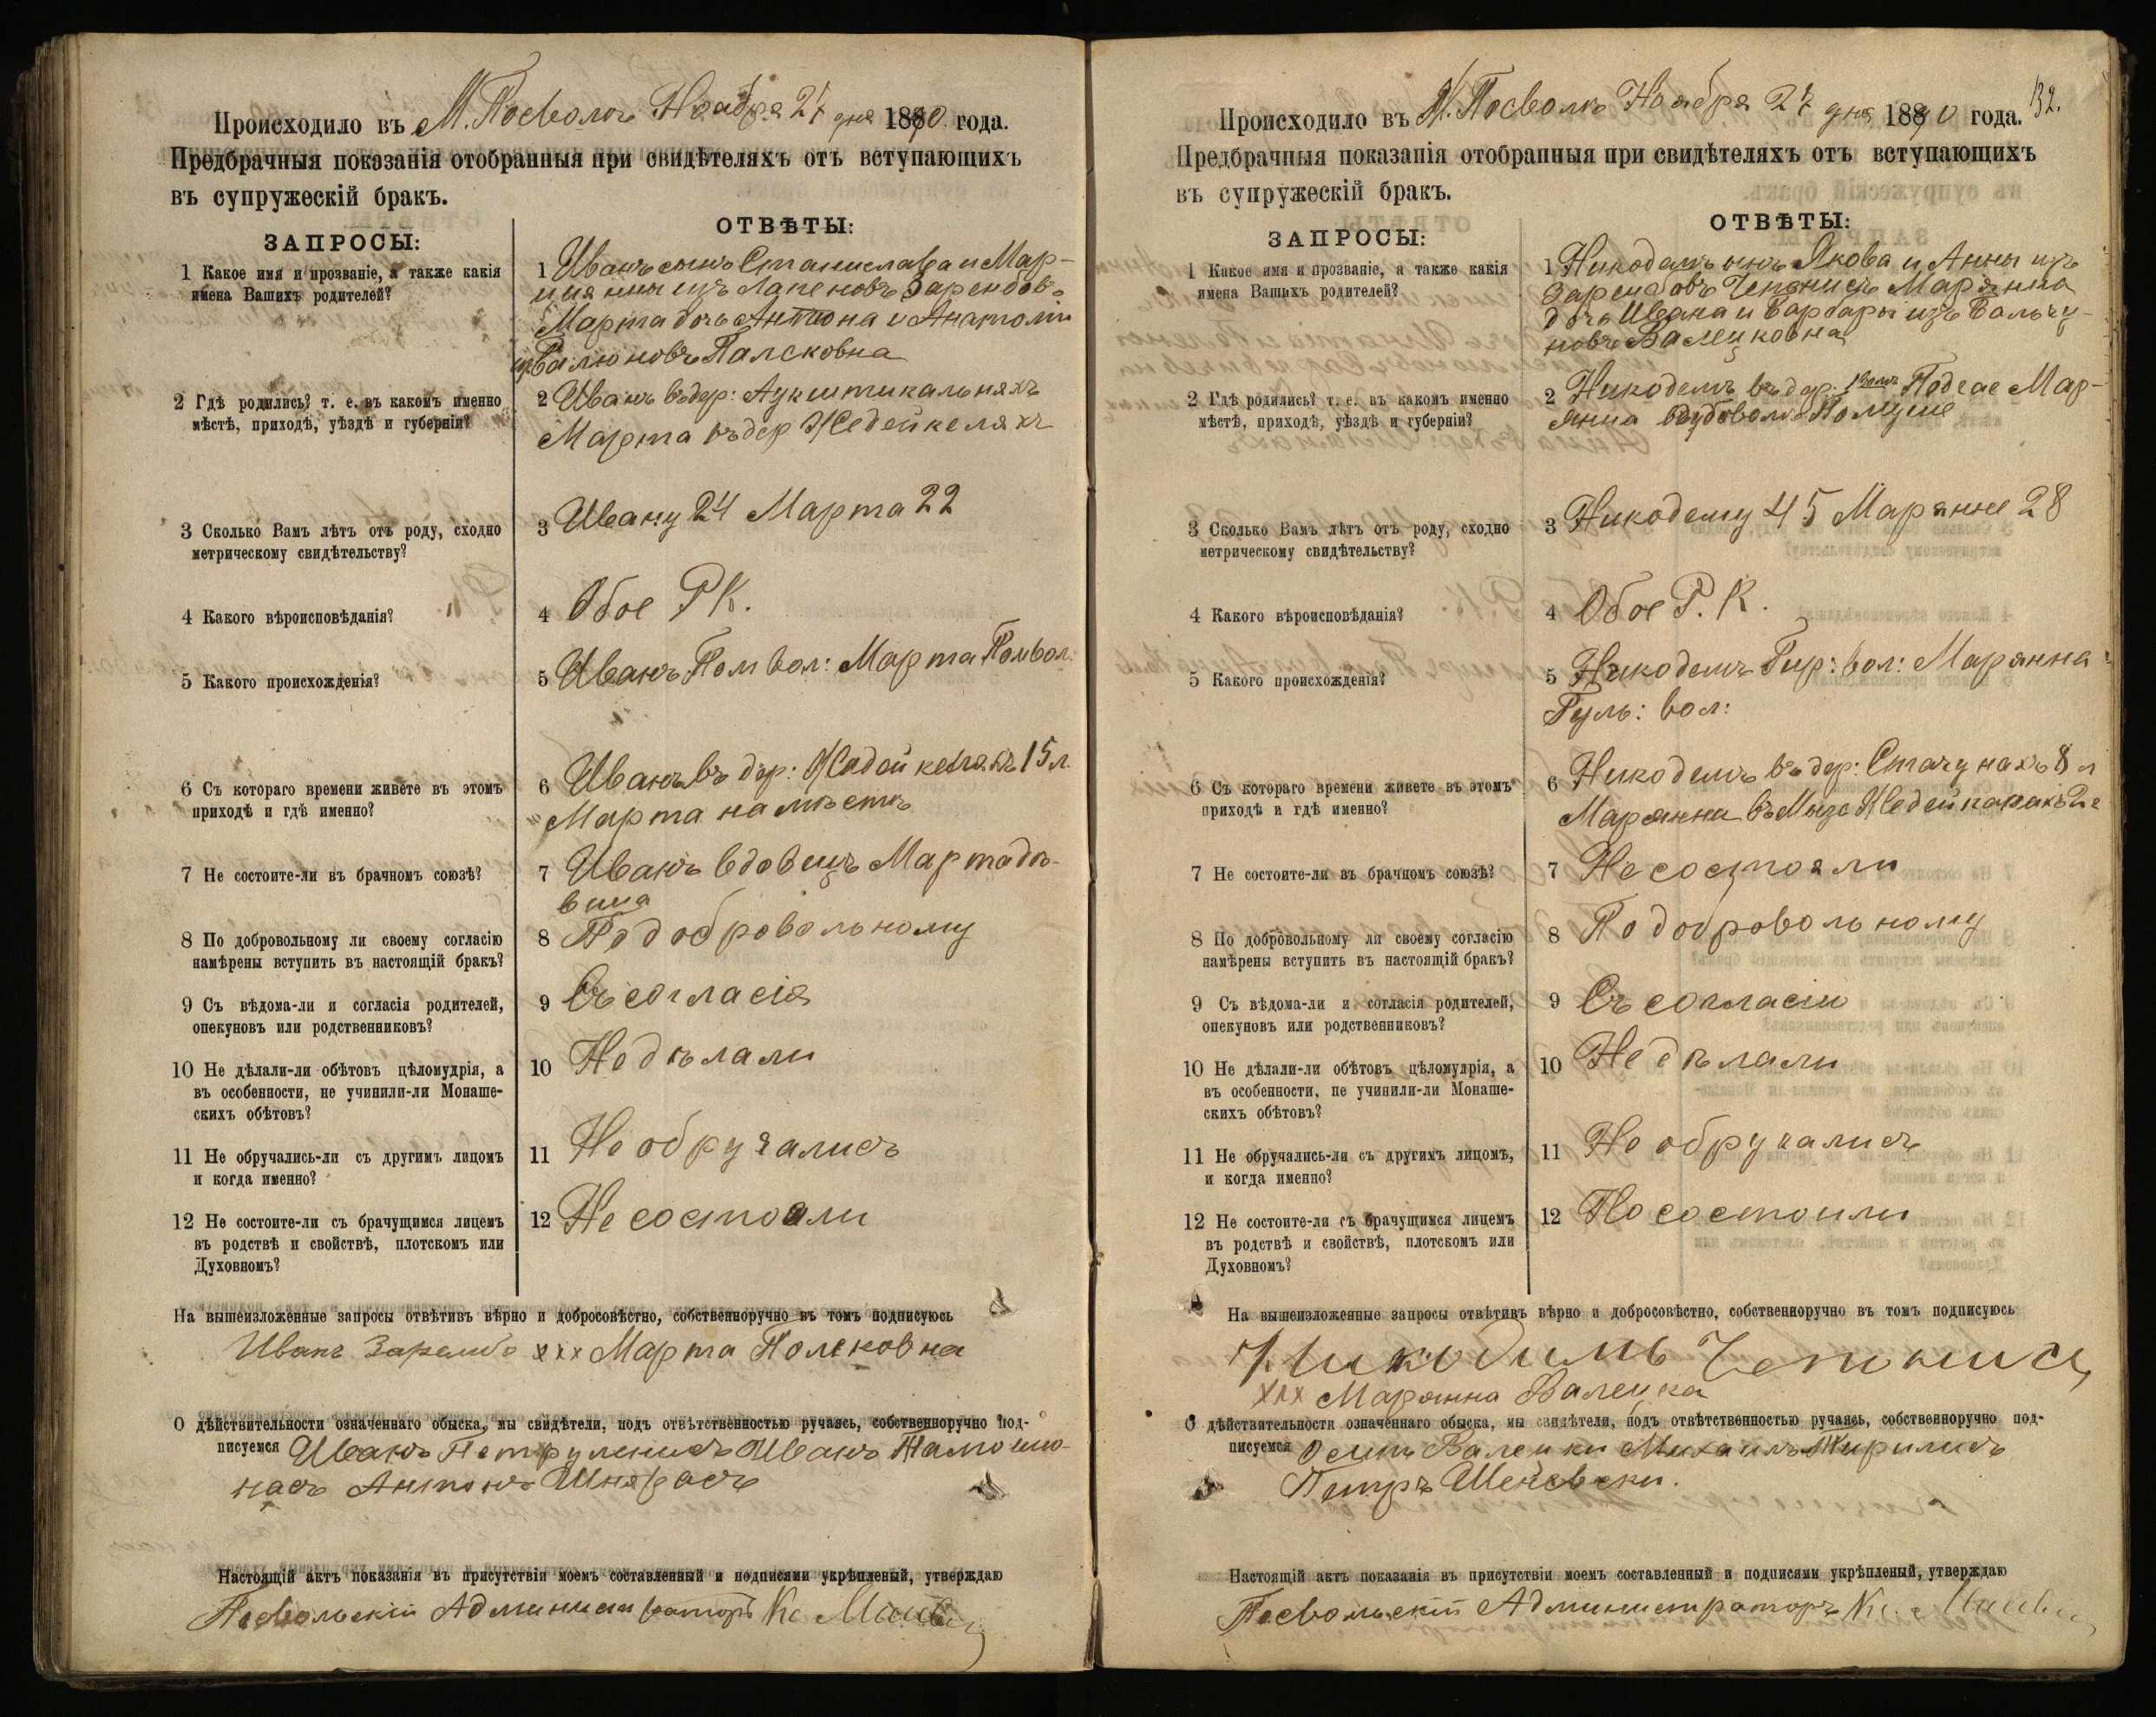 Происходило въ М. Посволѣ Ноября 24 дня 1890 года.
Предбрачныя показанія отобранныя при свидѣтеляхъ отъ вступающихъ
въ супружескій бракъ.
ЗАПРОСЫ:
ОТВѢТЫ:
1 Какое имя и прозваніе, а также какія
имена Вашихъ родителей?
1 Иванъ сынъ Станислава и Мар-
изъ Лапеновъ
Марта дочь Антона и
изъ Палсковна
2 Гдѣ родились? т. е. въ какомъ именно
мѣстѣ, приходѣ, уѣздѣ и губерніи?
2 Иванъ въ дер: Аукштикальняхъ
Марта въ дер Жедейкеляхъ
3 Сколько Вамъ лѣтъ отъ роду, сходно
метрическому свидѣтельству?
3 Ивану 24 Марта 22
4 Какого вѣроисповѣданія?
4 Обое Р К.
5 Какого происхожденія?
5 Иванъ Пом вол: Марта Помвол:
6 Съ котораго времени живете въ этомъ
приходѣ и гдѣ именно?
6 Иванъ въ дер: 15 л.
Марта на мѣстѣ
7 Не состоите-ли въ брачномъ союзѣ?
7 Иванъ вдовецъ Марта дѣ-
вица
8 По добровольному ли своему согласію
намѣрены вступить въ настоящій бракъ?
8 По добровольному
9 Съ вѣдома-ли и согласія родителей,
опекуновъ или родственниковъ?
9 Съ согласія
10 Не дѣлали-ли обѣтовъ цѣломудрія, а
въ особенности, не учинили-ли Монаше-
скихъ обѣтовъ?
10 Не дѣлали
11 Не обручались-ли съ другимъ лицомъ
и когда именно?
11 Не обручались
12 Не состоите-ли съ брачущимся лицемъ
въ родствѣ и свойствѣ, плотскомъ или
Духовномъ?
12 Не состояли
На вышеизложенные запросы отвѣтивъ вѣрно и добросовѣстно, собственноручно въ томъ подписуюсь
Иванъ Зарембо ххх Марта Полсковна
О дѣйствительности означеннаго обыска, мы свидѣтели, подъ отвѣтственностью ручаясь, собственноручно под-
писуемся Иванъ Петрулисъ Иванъ
Антонъ
Настоящій актъ показанія въ присутствіи моемъ составленный и подписями укрѣпленый, утверждаю
Посвольскій Администраторъ Кс.
132.
Происходило въ М. Посволѣ Ноября 27 дня 1890 года.
Предбрачныя показанія отобранныя при свидѣтеляхъ отъ вступающихъ
въ супружескій бракъ.
ЗАПРОСЫ:
ОТВѢТЫ:
1 Какое имя и прозваніе, а также какія
имена Вашихъ родителей?
1 Никодемъ сынъ Якова и Анны изъ
Зарембовъ Чепонисъ Марянна
дочь Ивана и Барбары изъ Бальчу-
новъ Валецковна
2 Гдѣ родились? т. е. въ какомъ именно
мѣстѣ, приходѣ, уѣздѣ и губерніи?
2 Никодемъ въ дер: Подгае Мар-
янна
3 Сколько Вамъ лѣтъ отъ роду, сходно
метрическому свидѣтельству?
3 Никодему 45 Марянне 28
4 Какого вѣроисповѣданія?
4 Обое Р. К.
5 Какого происхожденія?
5 Никодемъ Гир: вол: Марянна
вол:
6 Съ котораго времени живете въ этомъ
приходѣ и гдѣ именно?
6 Никодемъ въ дер: Стачунахъ 8 л
Марянна въ Мызе
7 Не состоите-ли въ брачномъ союзѣ?
7 Не состояли
8 По добровольному ли своему согласію
намѣрены вступить въ настоящій бракъ?
8 По добровольному
9 Съ вѣдома-ли и согласія родителей,
опекуновъ или родственниковъ?
9 Съ согласіи
10 Не дѣлали-ли обѣтовъ цѣломудрія, а
въ особенности, не учинили-ли Монаше-
скихъ обѣтовъ?
10 Не дѣлали
11 Не обручались-ли съ другихъ лицомъ,
и когда именно?
11 Не обручались
12 Не состоите-ли съ брачущимся лицемъ
въ родствѣ и свойствѣ, плотскомъ или
Духовномъ?
12 Не состоили
На вышеизложенные запросы отвѣтивъ вѣрно и добросовѣстно, собственноручно въ томъ подписуюсь
Никодимъ Чепонисъ
ххх Марянна Валецка
О дѣйствительности означеннаго обыска, мы свидѣтели, подъ отвѣтственностью ручаясь, собственноручно под-
писуемся Осипъ Валецки Михаилъ
Петръ
Настоящій актъ показанія въ присутствіи моемъ составленный и подписями укрѣпленый, утверждаю
Посвольскій Администраторъ Кс.